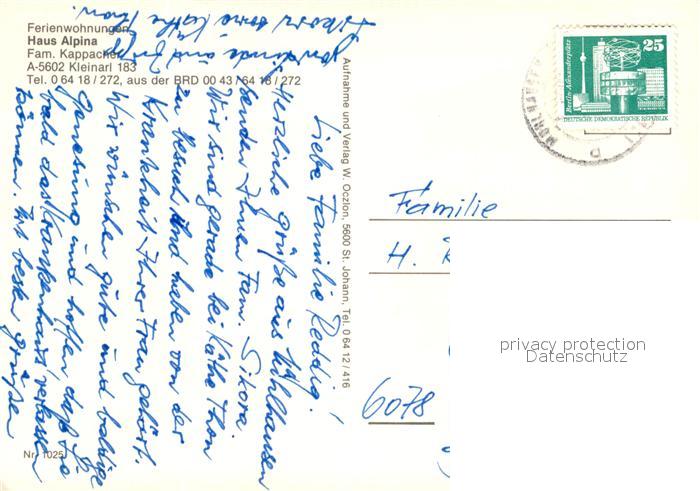 Ferienwohnungen
Haus Alpina
Fam. Kappacher
A-5602 Kleinarl 183
Tel. 0 64 18 / 272, aus der BRD 00 43 / 64 18 / 272
Liebe Familie Reddig!
Herzliche Grüße aus Mühlhausen
senden Ihnen Fam. Sikora.
Wir sind gerade bei Käthe Thon
zu Besuch und haben von der
Krankheit Ihrer Frau gehört.
Wir wünschen gute und baldige
Genesung und hoffen daß Sie
bald das Krankenhaus verlassen
können. Mit besten Grüßen
und
Sikora Käthe Thon.
Nr. 1025
Aufnahme und Verlag W. Oczlon, 5600 St. Johann, Tel. 0 64 12 / 416
25
Berlin-Alexanderplatz
DEUTSCHE DEMOKRATISCHE REPUBLIK
Familie
H.
6078
privacy protection
Datenschutz